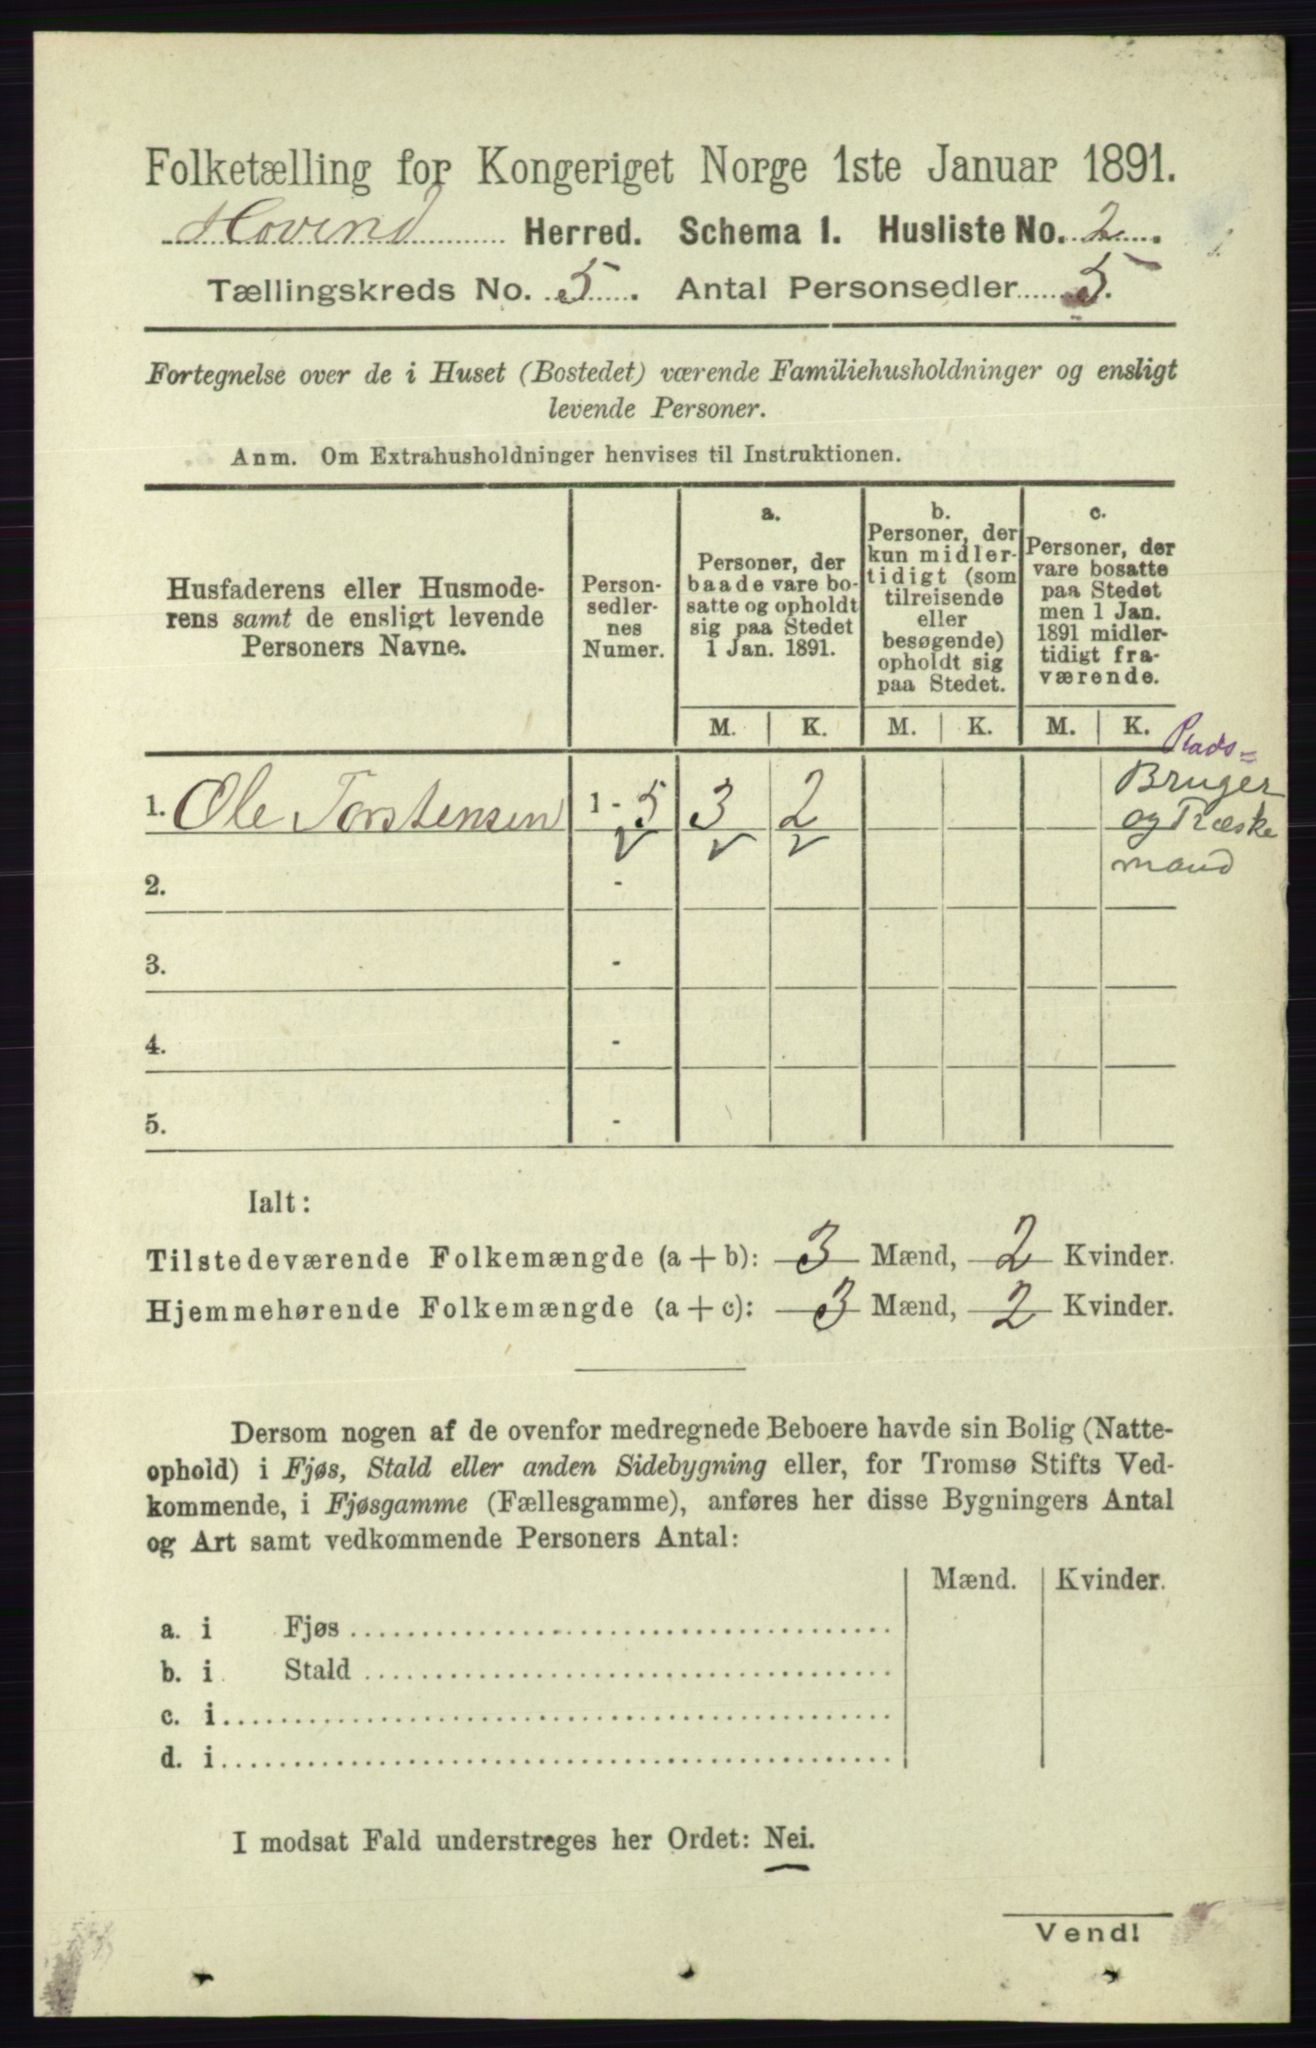 Folketælling for Kongeriget Norge 1ste Januar 1891.
Hovind Herred. Schema 1. Husliste No. 2.
Tællingskreds No. 5. Antal Personsedler 5.
Fortegnelse over de i Huset (Bostedet) værende Familiehusholdninger og ensligt
levende Personer.
Anm. Om Extrahusholdninger henvises til Instruktionen.
Husfaderens eller Husmode-
rens samt de ensligt levende
Personers Navne.
Person-
sedler-
nes
Numer.
a.
Personer, der
baade vare bo-
satte og opholdt
sig paa Stedet
1 Jan. 1891.
b.
Personer, der
kun midler-
tidigt (som
tilreisende
eller
besøgende)
opholdt sig
paa Stedet.
c.
Personer, der
vare bosatte
paa Stedet
men 1 Jan.
1891 midler-
tidigt fra-
værende.
M. K. M. K. M. K.
Plads-
Bruger
og Træske
mand
1. Ole Torstensen 1 - 5 3 2
2. -
3. -
4. -
5. -
Ialt:
Tilstedeværende Folkemængde (a + b): 3 Mænd, 2 Kvinder.
Hjemmehørende Folkemængde (a + c): 3 Mænd, 2 Kvinder.
Dersom nogen af de ovenfor medregnede Beboere havde sin Bolig (Natte-
ophold) i Fjøs, Stald eller anden Sidebygning eller, for Tromsø Stifts Ved-
kommende, i Fjøsgamme (Fællesgamme), anføres her disse Bygningers Antal
og Art samt vedkommende Personers Antal:
Mænd. Kvinder.
a. i Fjøs
b. i Stald
c. i
d. i
I modsat Fald understreges her Ordet: Nei.
Vend!